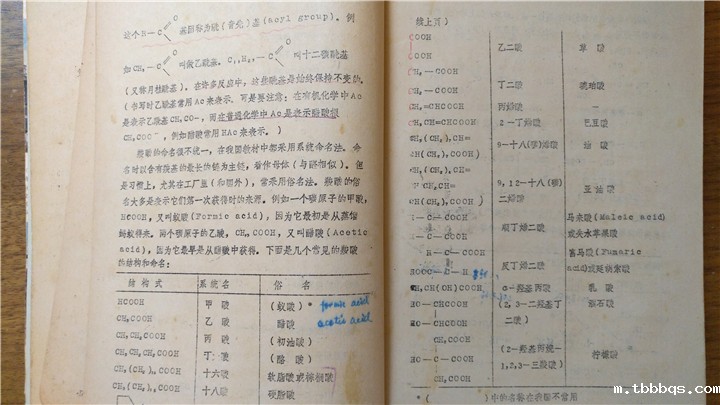 这个R—C
O
基团称为酰(音先)基(acyl group)。例
如CH₃—C
O
叫做乙酰基。C₁₁H₂₃—C
O
叫十二碳酰基
(又称月桂酰基)。在许多反应中,这些酰基是始终保持不变的。
(书写时乙酰基常用Ac来表示。可是要注意:在有机化学中Ac
是表示乙酰基CH₃CO—,而在普通化学中Ac是表示醋酸根
CH₃COO⁻,例如醋酸常用HAc来表示。)
羧酸的命名很不统一,在我国教材中都采用系统命名法。命
名时以含有羧基的最长的链为主链,看作母体(与醛相似)。但
是习惯上,尤其在工厂里(和国外),常采用俗名法。羧酸的俗
名大多是表示它们第一次获得时的来源。例如一个碳原子的甲酸,
HCOOH,又叫蚁酸(Formic acid),因为它最初是从蒸馏
蚂蚁得来。两个碳原子的乙酸,CH₃COOH,又叫醋酸(Acetic
acid),因为它最早是从醋酸中获得。下面是几个常见的脂酸
的结构和命名:
结构式 系统名 俗名
HCOOH 甲酸 (蚁酸)* formic acid
CH₃COOH 乙酸 醋酸 acetic acid
CH₃CH₂COOH 丙酸 (初油酸)
CH₃CH₂CH₂COOH 丁酸 (酪酸)
CH₃(CH₂)₁₄COOH 十六酸 软脂酸或棕榈酸
CH₃(CH₂)₁₆COOH 十八酸 硬脂酸
续上页)
COOH
COOH 乙二酸 草酸
CH₂—COOH
CH₂—COOH 丁二酸 琥珀酸
CH₂=CHCOOH 丙烯酸 —
CH₃CH=CHCOOH 2-丁烯酸 巴豆酸
CH₃(CH₂)₇CH=
CH(CH₂)₇COOH) 9-十八(碳)烯酸 油酸
CH₃(CH₂)₄CH=
CH(CH₂)₇COOH 9,12-十八(碳)
二烯酸 亚油酸
H—C—COOH
H—C—COOH 顺丁烯二酸 马来酸(Maleic acid)
或失水苹果酸
H—C—COOH
HOOC—C—H 反丁烯二酸 富马酸(Fumaric
acid)或延胡索酸
CH₃CH(OH)COOH α-羟基丙酸 乳酸
HO—CHCOOH
HO—CHCOOH (2,3-二羟基丁
二酸) 酒石酸
CH₂COOH
HO—C—COOH
CH₂COOH (2-羟基丙烷-
1,2,3-三羧酸) 柠檬酸
*( )中的名称在我国不常用
m.tbbbqs.com